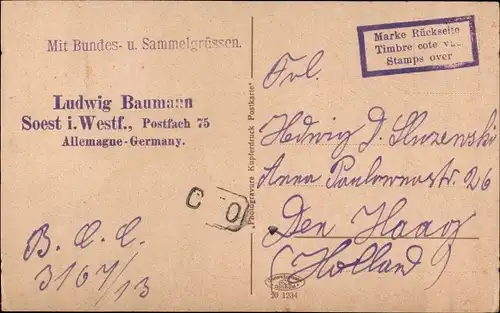 Mit Bundes- u. Sammelgrüssen.
Ludwig Baumann
Soest i. Westf., Postfach 75
Allemagne-Germany.
C O
B. C. C.
3167/13
"Photogravure Kupferdruck Postkarte"
Marke Rückseite
Timbre cote vue
Stamps over
Frl.
Hedwig D. Sluzenski
Anna Paulownastr. 26
Den Haag
(Holland)
20 1234